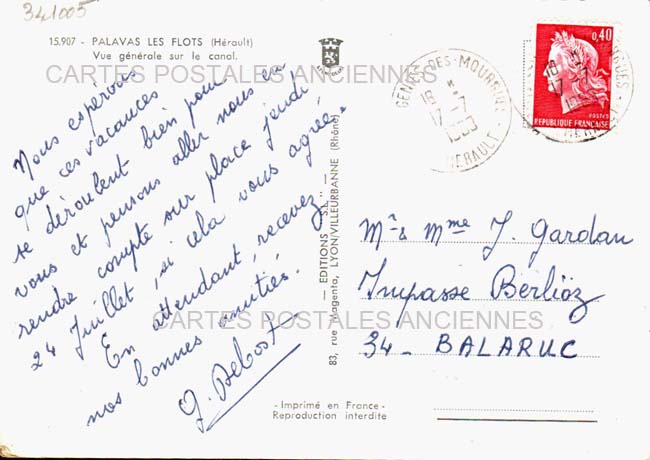 341005
15.907 - PALAVAS LES FLOTS (Hérault)
Vue générale sur le canal.
CARTES POSTALES ANCIENNES
Nous espérons
que ces vacances
se déroulent bien pour
vous et pensons aller nous en
rendre compte sur place jeudi
24 Juillet, si cela vous agrée.
En attendant, recevez
nos bonnes amitiés.
83, rue Magenta, LYON/VILLEURBANNE (Rhône)
— EDITIONS "S.L." —
18 H
17-7
HERAULT
0,40
REPUBLIQUE FRANÇAISE
POSTES
Mr & Mme J. Gardan
Impasse Berlioz
34 - BALARUC
CARTES POSTALES ANCIENNES
- Imprimé en France -
Reproduction interdite